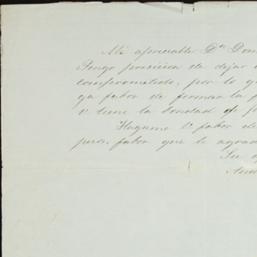 Mi apreciable Dn Dom
Tengo precision de dejar
comprometido, por lo q
ga fabor de firmar la p
v tiene la bondad de
Hagame V. fabor de
pues, fabor que le agrad
Su